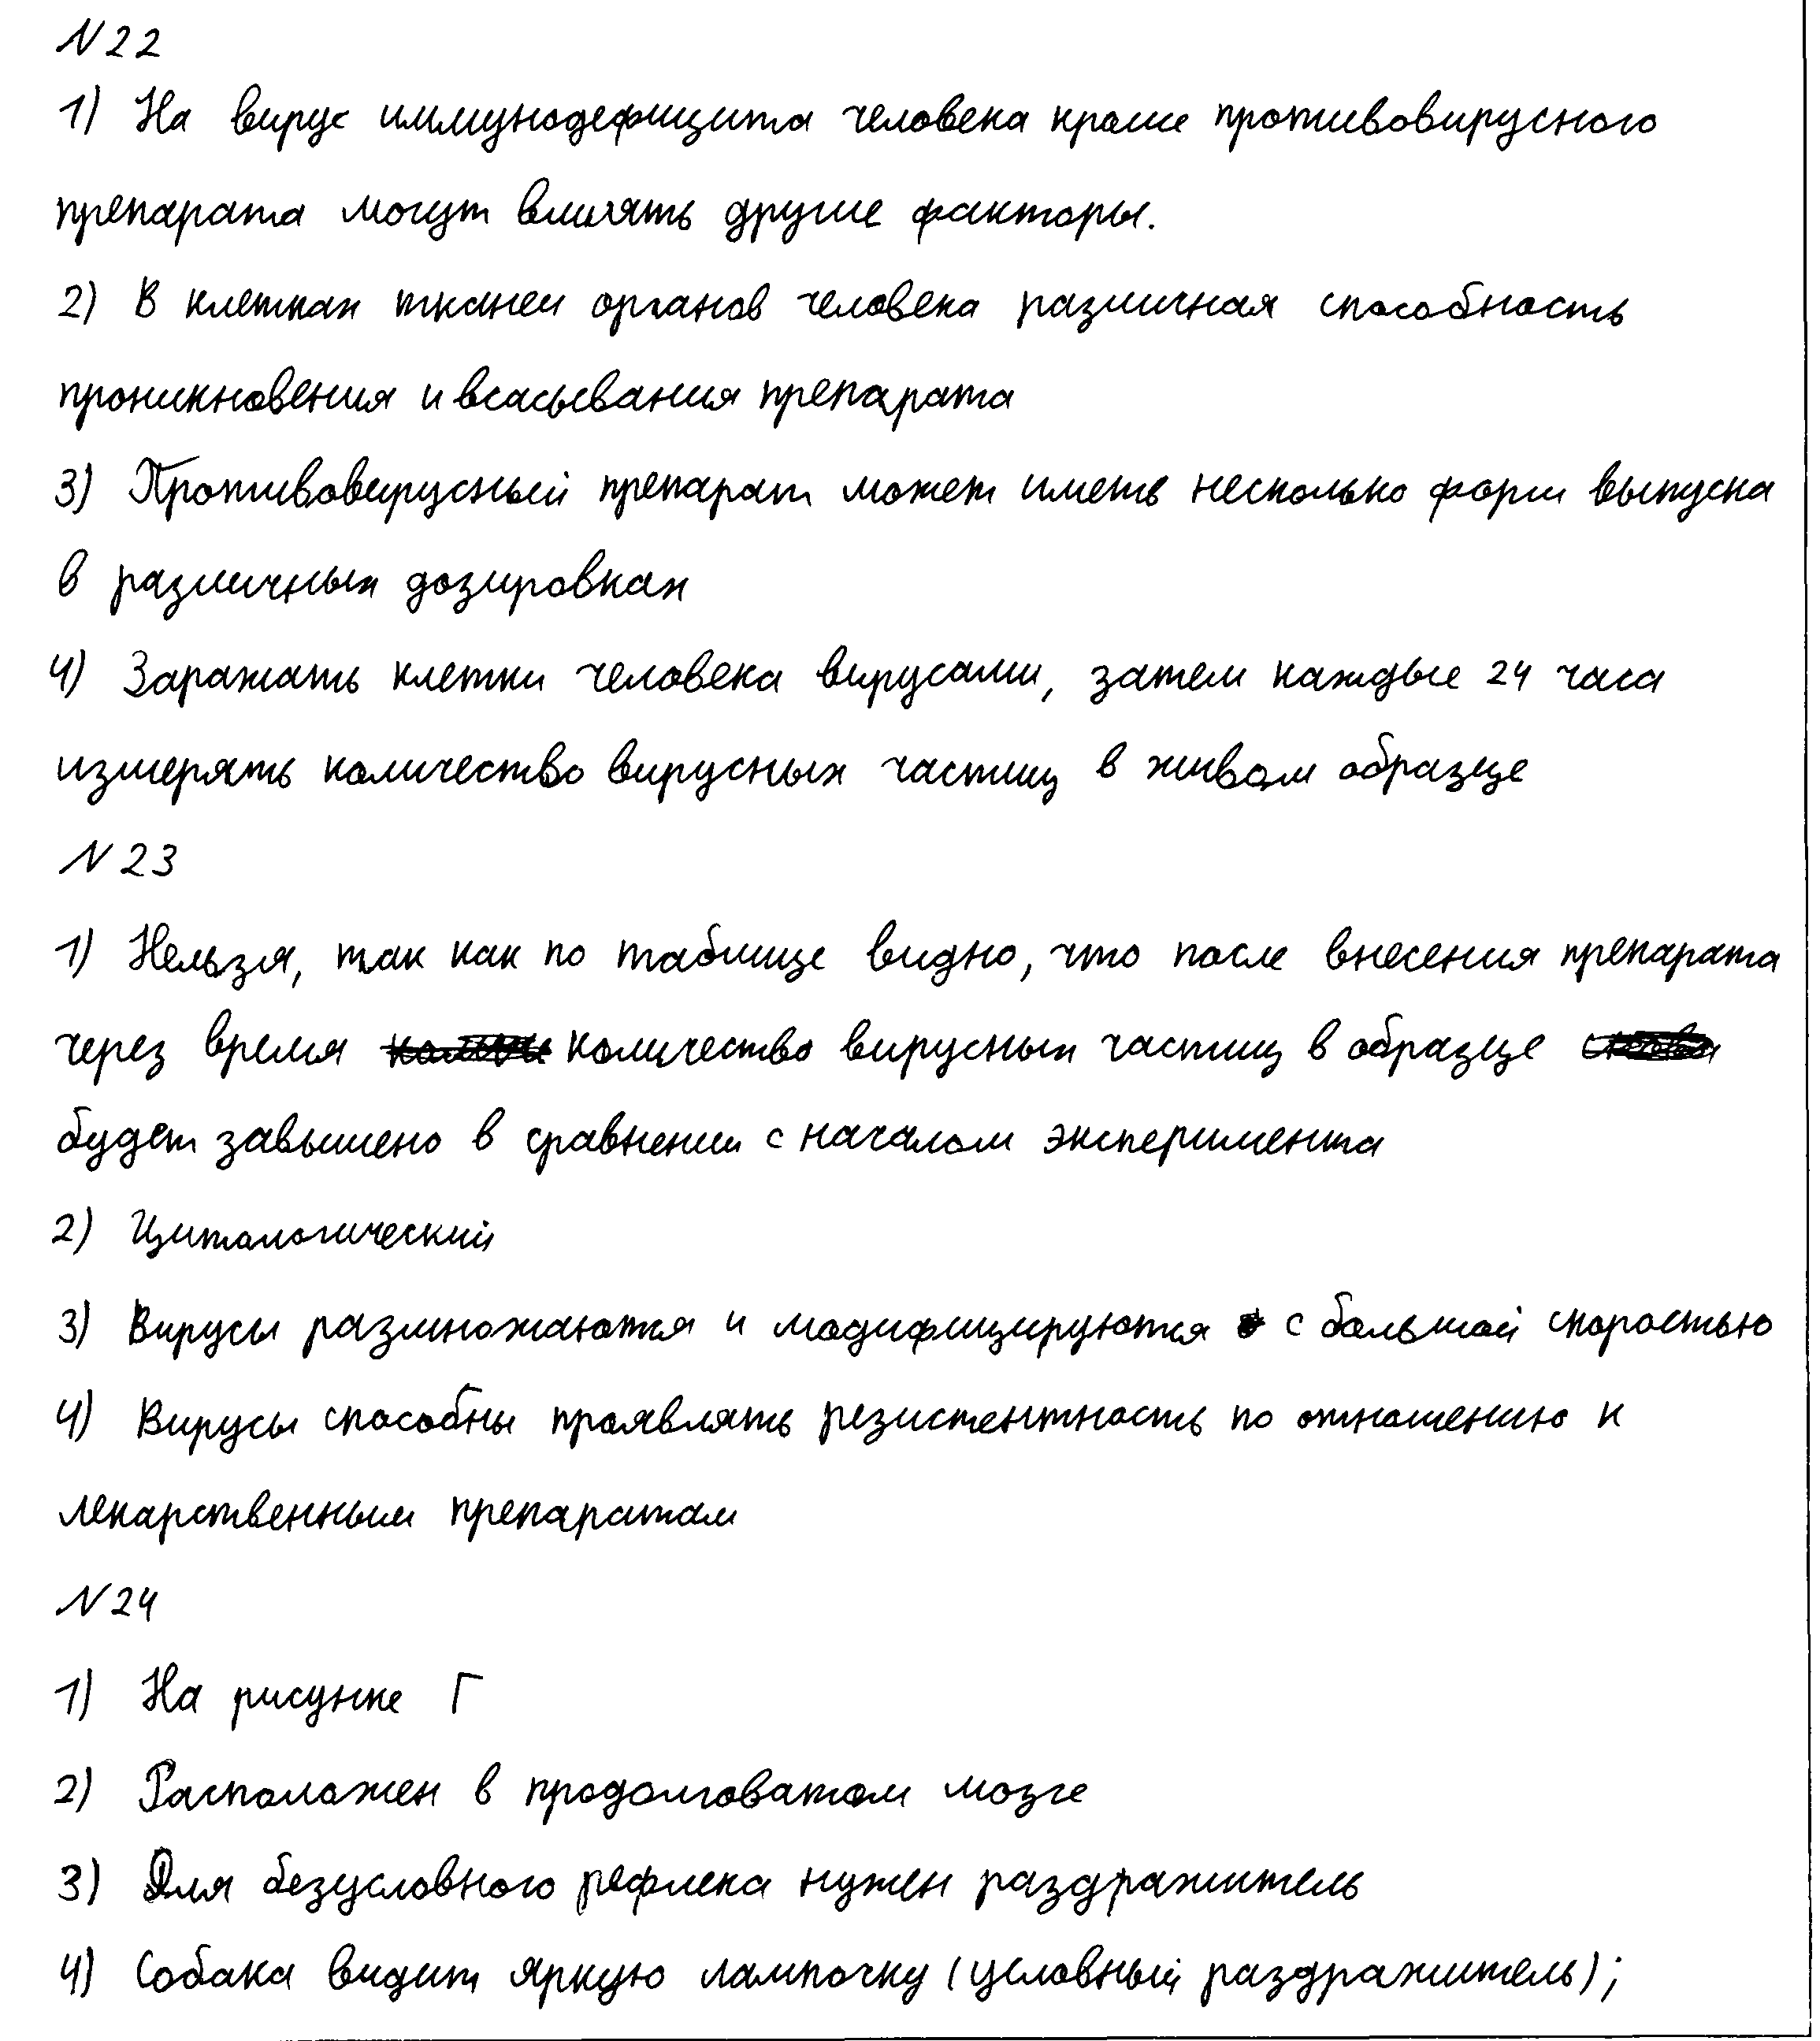 N22
1) На вирус иммунодефицита человека кроме противовирусного
препарата могут влиять другие факторы.
2) В клетках тканей органов человека различная способность
проникновения и всасывания препарата
3) Противовирусный препарат может иметь несколько форм выпуска
в различных дозировках
4) Заражать клетки человека вирусами, затем каждые 24 часа
измерять количество вирусных частиц в живом образце
N23
1) Нельзя, так как по таблице видно, что после внесения препарата
через время количество вирусных частиц в образце
будет завышено в сравнении с началом эксперимента
2) Цитологический
3) Вирусы размножаются и модифицируются с большой скоростью
4) Вирусы способны проявлять резистентность по отношению к
лекарственным препаратам
N24
1) На рисунке Г
2) Расположен в продолговатом мозге
3) Для безусловного рефлекса нужен раздражитель
4) Собака видит яркую лампочку (условный раздражитель);